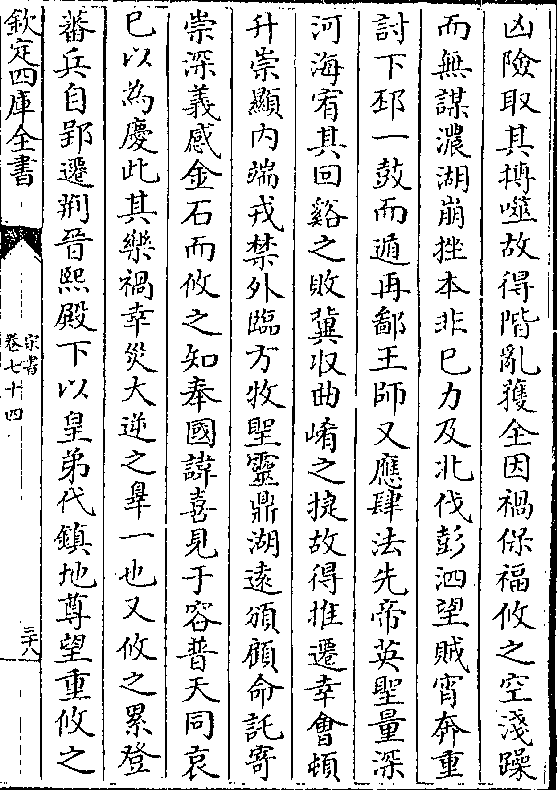 凶險取其搏噬故得階亂獲全因禍保福攸之空淺躁
而無謀濃湖崩挫本非已力及北伐彭泗望賊宵奔重
討下邳一鼓而遁再鄙王師又應肆法先帝英聖量深
河海宥其回谿之敗冀収曲崤之捷故得推遷幸會頓
升崇顯内端戎禁外臨方牧聖靈鼎湖遠頒顧命託寄
崇深義感金石而攸之知奉國諱喜見于容普天同哀
已以為慶此其樂禍幸災大逆之辠一也又攸之累登
蕃兵自郢遷荆晉熙殿下以皇弟代鎮地尊望重攸之
欽定四庫全書
宋書
卷七十四
三十八